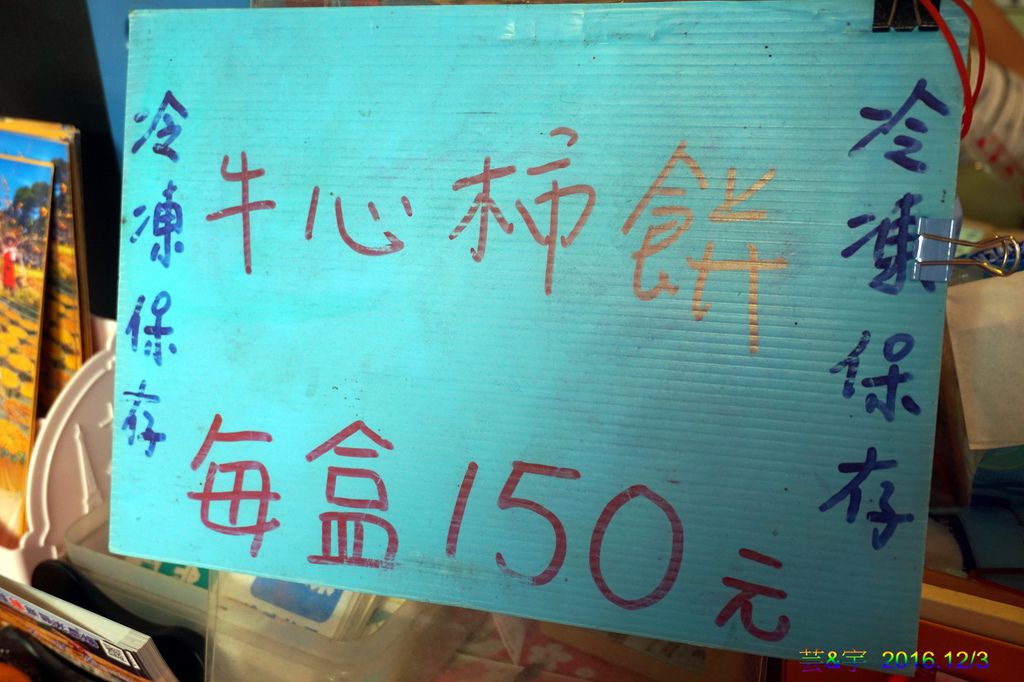 冷凍保存
牛心柿餅
每盒150元
冷凍保存
芸&宇 2016.12/3